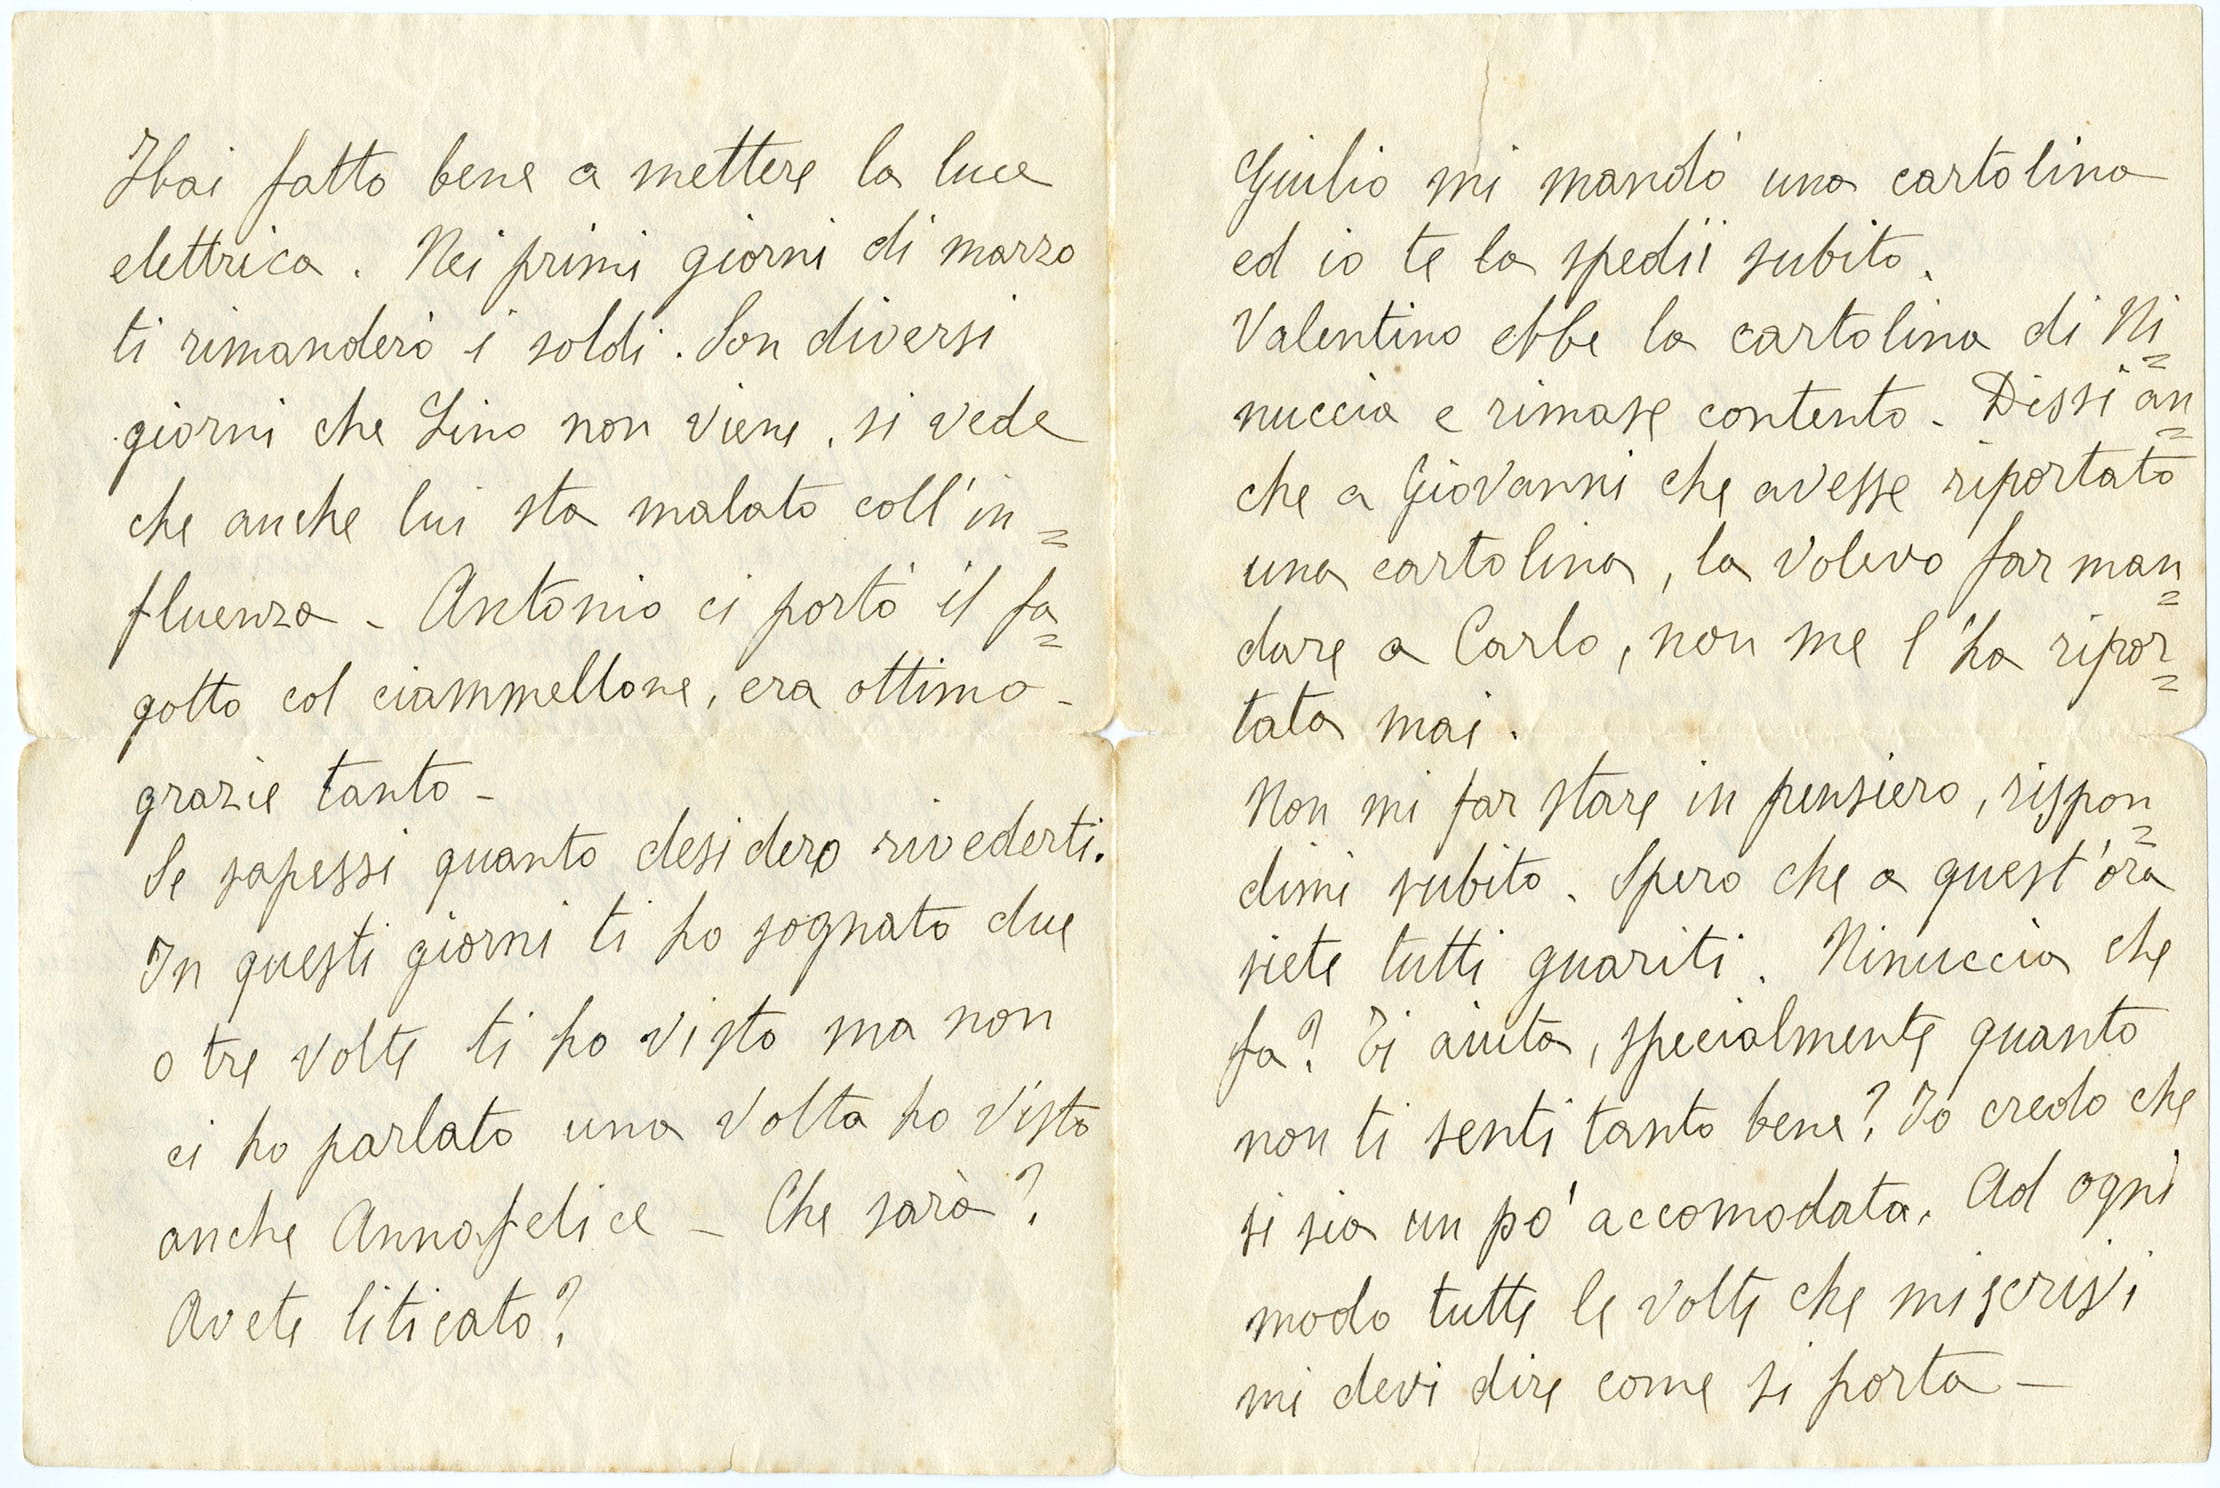 Hai fatto bene a mettere la luce
elettrica. Nei primi giorni di marzo
ti rimanderò i soldi. Son diversi
giorni che Lino non viene, si vede
che anche lui sta malato coll'in=
fluenza - Antonio ci portò il fa=
gotto col ciammellone, era ottimo -
grazie tanto -
Se sapessi quanto desidero rivederti.
In questi giorni ti ho sognato due
o tre volte ti ho visto ma non
ci ho parlato una volta ho visto
anche Annafelice - Che sarà?
Avete liticato?
Giulio mi mandò una cartolina
ed io te la spedii subito.
Valentino ebbe la cartolina di Ni=
nuccia e rimase contento - Dissi an=
che a Giovanni che avesse riportato
una cartolina, la volevo far man=
dare a Carlo, non me l'ha ripor=
tata mai.
Non mi far stare in pensiero, rispon=
dimi subito. Spero che a quest'ora
siete tutti guariti. Ninuccia che
fa? Ti aiuta, specialmente quanto
non ti senti tanto bene? Io credo che
si sia un pò accomodata. Ad ogni
modo tutte le volte che mi scrivi
mi devi dire come si porta -